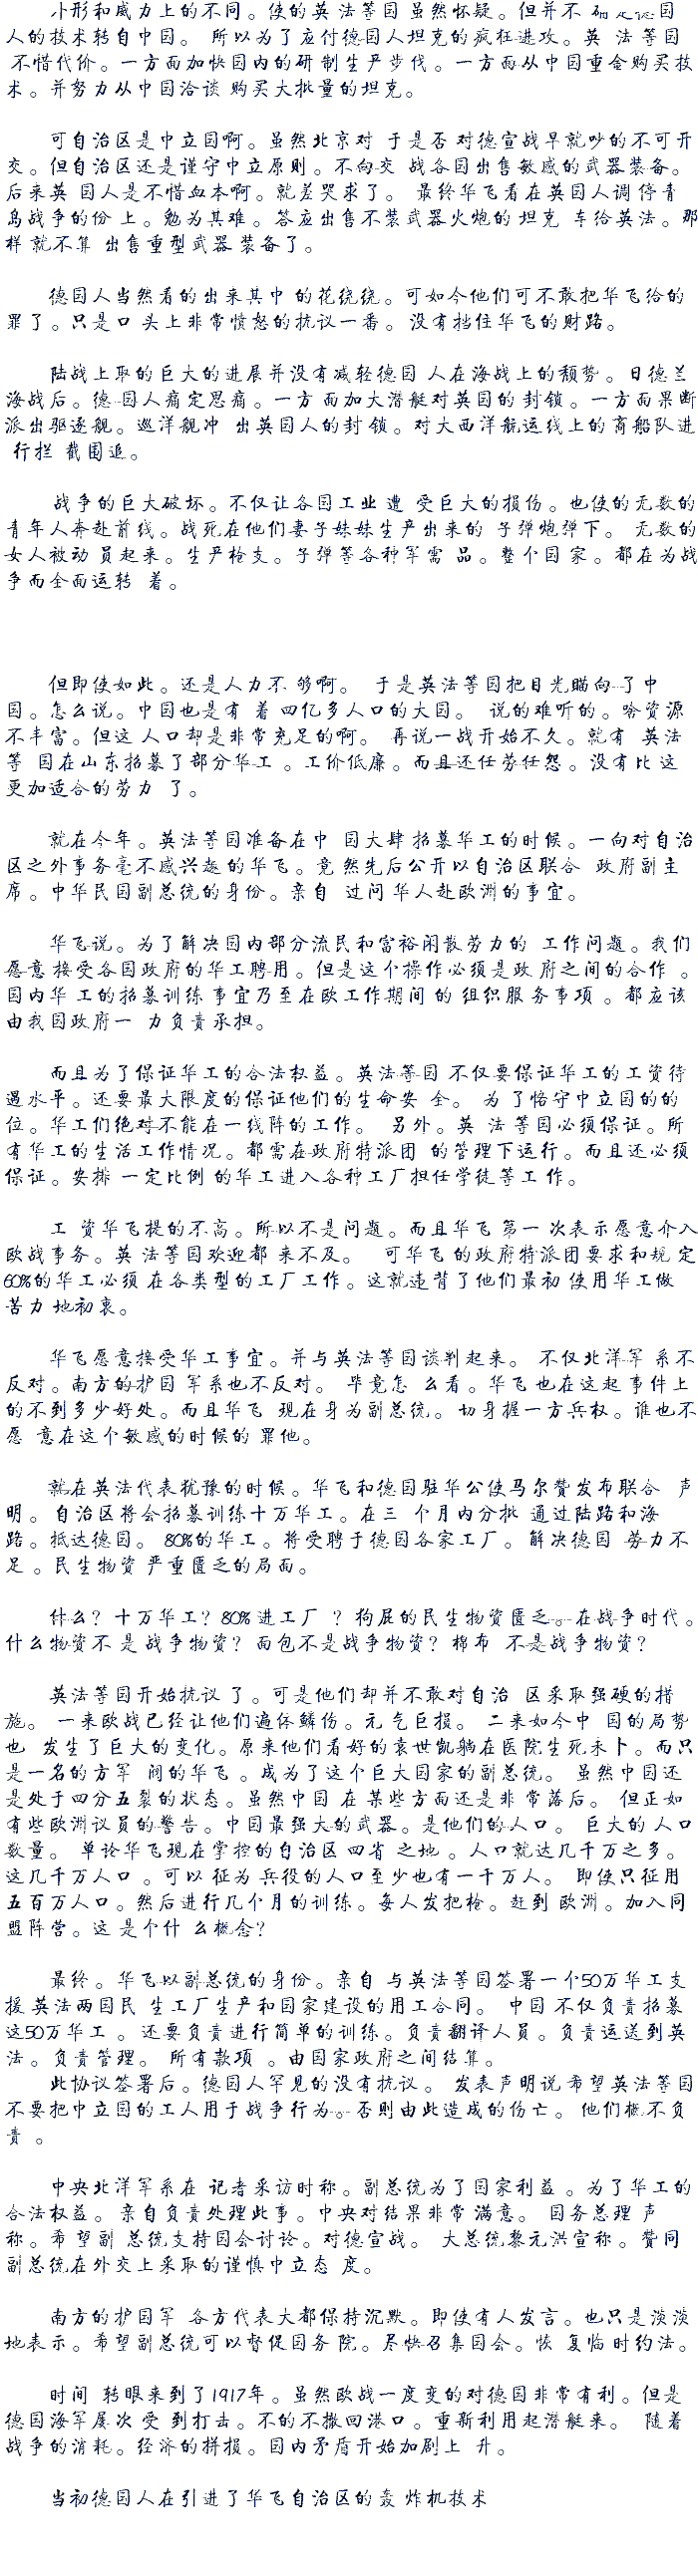 小形和威力上的不同。使的英 法等国 虽然怀疑。但并不 确定德国
人的技术转自中国。 所以为了应付德国人坦克的疯狂进攻。英 法 等国
不惜代价。一方面加快国内的研 制生产步伐。一方面从中国重金购买技
术。并努力从中国洽谈 购买大批量的坦克。
可自治区是中立国啊。虽然北京对 于是否 对德宣战早就吵的不可开
交。但自治区还是谨守中立原则。不向交 战各国出售敏感的武器装备。
后来英 国人是不惜血本啊。就差哭求了。 最终华飞看在英国人调 停青
岛战争的份 上。勉为其难。答应出售不装武器火炮的 坦克 车给英法。那
样 就不算 出售重型武器 装备了。
德国人当然看的出来其中 的花绕绕。可如今他们可不敢把华飞给的
罪了。只是口 头上非常愤怒的抗议一番。 没有挡住华飞的财路。
陆战上取的巨大的进展并没有减轻德国 人在海战上的颓势。日德兰
海战后。德 国人痛定思痛。一方 面加大潜艇对英国的 封锁。一方面果断
派出驱逐舰。巡洋舰冲 出英国人的封 锁。对大西洋航运线上的商船队进
行拦 截围追。
战争的巨大破坏。不仅让各国工业 遭 受巨大的损伤。也使的无数的
青年人奔赴前线。战死在他们妻子妹妹生产出来的 子弹炮弹下。 无数的
女人被动 员起来。生产枪支。子弹等各种军需 品。整个国家。都在为战
争而全面运转 着。
但即使如此。还是人力不 够啊。 于是英法等国把目光瞄向 了中
国。怎么说。中国也是有 着 四亿多人口的大国。 说的难听的。啥资源
不丰富。但这 人口却是非常充足的啊。 再说一战开始不久。就有 英法
等 国在山东招募了部分华工 。工价低廉。而且还任劳任怨。没有比 这
更加适合的劳力 了。
就在今年。英法等国准备在中 国大肆 招募华工的时候。一向对自治
区之外事务毫不感兴趣 的华飞。竟 然先后公开以自治区联合 政府副主
席。中华民国副总统的身份。亲自 过问 华人赴欧洲的事宜。
华飞说。为了解决国内部分流民和富裕闲散劳力的 工作问题。我们
愿意 接受各国政府的华工聘用。但是这个操作必须是政 府之间的合作 。
国内华 工的招募训练 事宜乃至在欧工作期间 的 组织服 务事项 。都应该
由我国政府一 力负责承担。
而且为了保证华工的合法权益。英法等国 不仅要保证华工的工资待
遇水平。还要最大限度的保证他们的生命安 全。 为 了恪守中立国的的
位。华工们绝对不能在一线阵的工作。 另外。英 法 等国必须保证。所
有华工的生活工作情况。都需在政府特派团 的管理下运行。而且还必须
保证。安排 一定比例 的华工进入各种工厂担任学徒等工 作。
工 资华飞提的不高。所以不是问题。而且华飞 第一 次表示愿意介入
欧战事务。英 法等国欢迎都 来不及。 可华飞 的政府特派团要求和规 定
60%的华工必须 在各类型的工厂工作。这就违背了他们最初 使用华工做
苦力 地初衷。
华飞愿意接受华工事宜。并与英法等国谈判起来。 不仅北洋军 系不
反对。南方的护国 军系也不反对。 毕竟怎 么看。华飞 也在这起 事件上
的不到多少好处。而且华飞 现在身为副总统。切身握一方兵权。谁也不
愿 意在这个敏感的时候的 罪他。
就在英法代表犹豫的时候。华飞和德国驻华公使马尔赞发布联合 声
明。自治区将会招募训练十万华工。在三 个月内分批 通过陆路和海
路。抵达德国。 80%的华工。将受聘于德国各家工厂。解决德国 劳力不
足 。民生物资 严重匮乏的局面。
什么？十万华工？80%进工厂 ？狗屁的民生物资匮乏。在战争时代。
什么物资不 是 战争物资？面包不是战争物资？棉布 不是战争物资？
英法等国开始抗议 了。可是他们却并不敢对自治 区采取强硬的措
施。 一来欧战已经让他们遍体鳞伤。元 气巨损。 二来如今中 国的局势
也 发生了巨大的变化。原来他们看好的袁世凯躺在医院生死未卜。而只
是一名的方军 阀的华飞 。成为了这个巨大国家的副总统。 虽然中国还
是处于四分五裂的状态。虽然中国 在 某些方面还是非 常落后。 但正如
有些欧洲议员的警告。中国最强大的武器。是他们的人口。 巨大的 人口
数量。 单论华飞现在掌控的自治区 四省 之地 。人口就达几千万之多。
这几千万人口 。可以 征为 兵役的人口至少也有一千万人。 即使只征用
五百万人口。然后进行几个月的训练。每人发把枪。赶到 欧洲。加入同
盟阵营。这 是个什 么概念？
最终。华飞以副总统的身份。亲自 与英法等国签署一个50万华工支
援 英法两国民 生工厂生产和国家建设的用工合同。 中国 不仅负责招募
这50万华工 。还要负责进行简单的训练。负责翻译人员。负责运送到英
法。负责管理。 所有款项 。由国家政府之间结算。
此协议签署后。德国人罕见的没有抗议。 发表声明说 希望英法等国
不要把中立国的工人用于战争行为。否则由此造成的伤亡。他们概不负
责 。
中央北洋军系在 记者采访时称。副总统为了国家利益 。为了华工的
合法权益。 亲自负责处理此事。中央对结果非常 满意。 国务总理 声
称。希望副 总统支持国会讨论。对德宣战。 大总统黎元洪宣称。赞同
副总统在外交上采取的谨慎中立态 度。
南方的护国军 各方代表大都保持沉默。即使有人发言。也只是淡淡
地表示。希望副总统可以督促国务 院。尽快召集国会。恢 复临 时约法。
时间 转眼来到了1917年。虽然欧战一度变的对德国非常有利。但是
德国海军屡次 受 到打击。不的不撤回港口。重新利用起潜艇来。 随着
战争的消耗。经济的拼损。国内矛盾开始加剧上 升。
当初德国人在引进了华飞自治区的轰 炸机技术